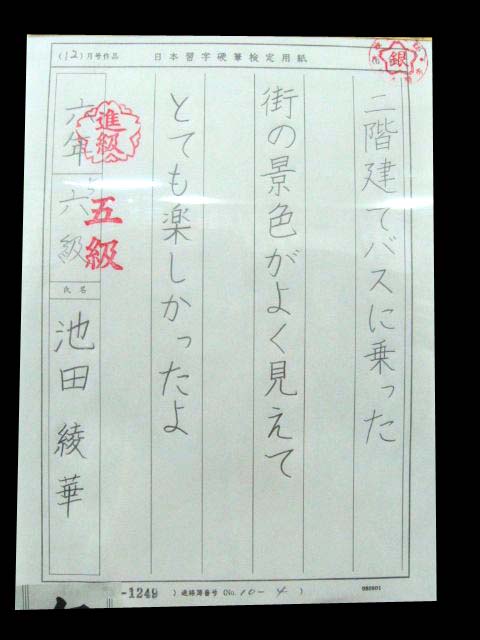 (12)月号作品 日本習字硬筆検定用紙
銀
二階建てバスに乗った
街の景色がよく見えて
とても楽しかったよ
進級
五級
六年
六級
氏名
池田綾華
-1249 ) 連絡簿番号 (No. 10-4 )
080801